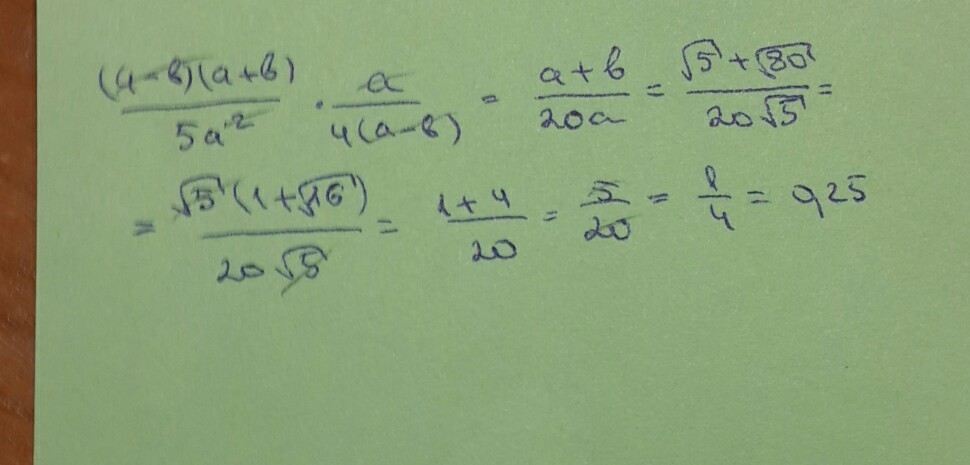 (a-b)(a+b)/5a² · a/4(a-b) = a+b/20a = √5+√80/20√5 =
= √5(1+√16)/20√5 = 1+4/20 = 5/20 = 1/4 = 0,25